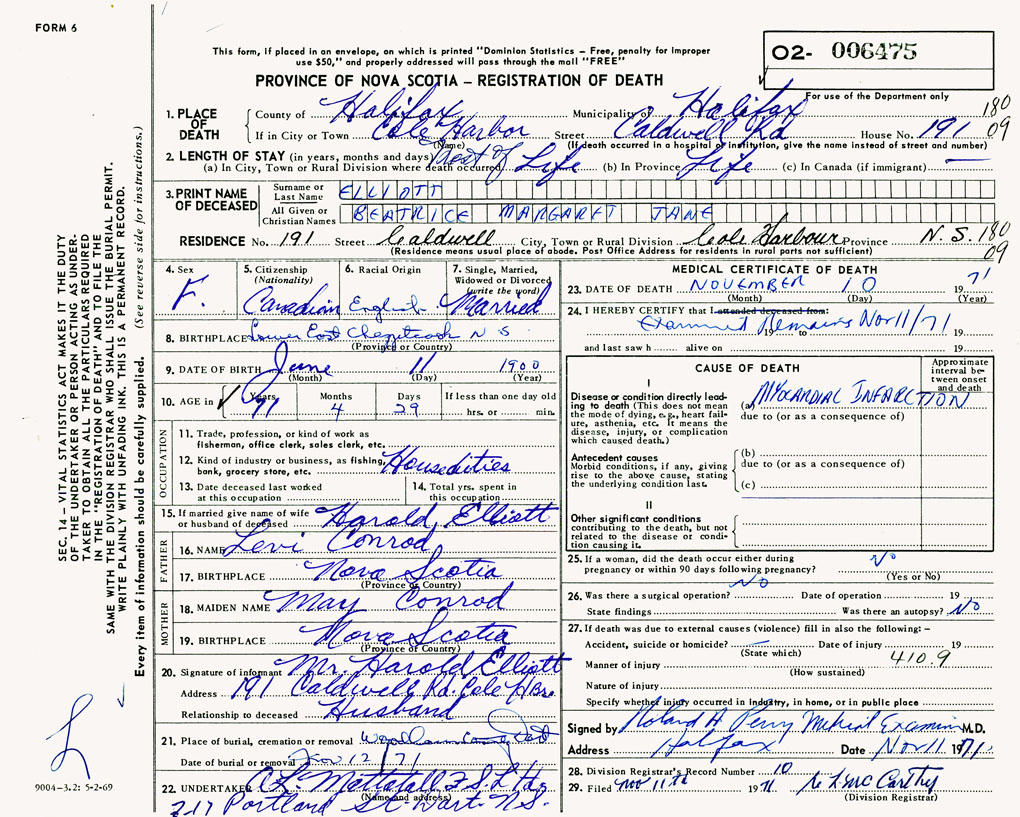 FORM 6
This form, if placed in an envelope, on which is printed "Dominion Statistics – Free, penalty for improper
use $50," and properly addressed will pass through the mail "FREE"
PROVINCE OF NOVA SCOTIA – REGISTRATION OF DEATH
O2- 006475
For use of the Department only
SEC. 14 – VITAL STATISTICS ACT MAKES IT THE DUTY
OF THE UNDERTAKER OR PERSON ACTING AS UNDER-
TAKER TO OBTAIN ALL THE PARTICULARS REQUIRED
IN THE "REGISTRATION OF DEATH" AND TO FILE THE
SAME WITH THE DIVISION REGISTRAR WHO SHALL ISSUE THE BURIAL PERMIT.
WRITE PLAINLY WITH UNFADING INK. THIS IS A PERMANENT RECORD.
Every item of information should be carefully supplied. (See reverse side for instructions.)
1. PLACE OF DEATH
County of Halifax Municipality of Halifax 180
If in City or Town Cole Harbor Street Caldwell Rd House No. 191 09
(Name) (If death occurred in a hospital or institution, give the name instead of street and number)
2. LENGTH OF STAY (in years, months and days)
(a) In City, Town or Rural Division where death occurred Most of Life (b) In Province Life (c) In Canada (if immigrant) —
3. PRINT NAME OF DECEASED
Surname or Last Name ELLIOTT
All Given or Christian Names BEATRICE MARGARET JANE
RESIDENCE No. 191 Street Caldwell City, Town or Rural Division Cole Harbour Province N.S. 180
(Residence means usual place of abode. Post Office Address for residents in rural parts not sufficient) 09
4. Sex F.
5. Citizenship (Nationality) Canadian
6. Racial Origin English
7. Single, Married, Widowed or Divorced (write the word) Married
8. BIRTHPLACE Lower East Chezzetcook N S
(Province or Country)
9. DATE OF BIRTH June 11 1900
(Month) (Day) (Year)
10. AGE in Years 71 Months 4 Days 29 If less than one day old hrs. or min.
OCCUPATION
11. Trade, profession, or kind of work as fisherman, office clerk, sales clerk, etc.
12. Kind of industry or business, as fishing, bank, grocery store, etc. Houseduties
13. Date deceased last worked at this occupation
14. Total yrs. spent in this occupation
15. If married give name of wife or husband of deceased Harold, Elliott
FATHER
16. NAME Levi Conrod
17. BIRTHPLACE Nova Scotia
(Province or Country)
MOTHER
18. MAIDEN NAME May Conrod
19. BIRTHPLACE Nova Scotia
(Province or Country)
20. Signature of informant Mr. Harold Elliott
Address 191 Caldwell Rd. Cole Hbr.
Relationship to deceased Husband
21. Place of burial, cremation or removal
Date of burial or removal Nov 12/71
22. UNDERTAKER Mattatall F.S. Ltd.
(Name and address)
217 Portland St. Dart. N.S.
9004–3.2: 5-2-69
MEDICAL CERTIFICATE OF DEATH
23. DATE OF DEATH NOVEMBER 10 71
(Month) (Day) (Year)
24. I HEREBY CERTIFY that I attended deceased from:
Examined Remains Nov 11/71 19
and last saw h alive on 19
CAUSE OF DEATH
Approximate interval between onset and death
I
Disease or condition directly leading to death (This does not mean the mode of dying, e.g., heart failure, asthenia, etc. It means the disease, injury, or complication which caused death.)
(a) MYOCARDIAL INFARCTION
due to (or as a consequence of)
Antecedent causes
Morbid conditions, if any, giving rise to the above cause, stating the underlying condition last.
(b)
due to (or as a consequence of)
(c)
II
Other significant conditions
contributing to the death, but not related to the disease or condition causing it.
25. If a woman, did the death occur either during pregnancy or within 90 days following pregnancy? No
(Yes or No)
26. Was there a surgical operation? No Date of operation 19
State findings Was there an autopsy? No
27. If death was due to external causes (violence) fill in also the following: –
Accident, suicide or homicide? — Date of injury 19
(State which)
Manner of injury 410.9
(How sustained)
Nature of injury
Specify whether injury occurred in industry, in home, or in public place
Signed by Roland H Perry Medical Examiner M.D.
Address Halifax Date Nov 11 1971
28. Division Registrar's Record Number 10
29. Filed Nov 11th 1971 McCarthy
(Division Registrar)